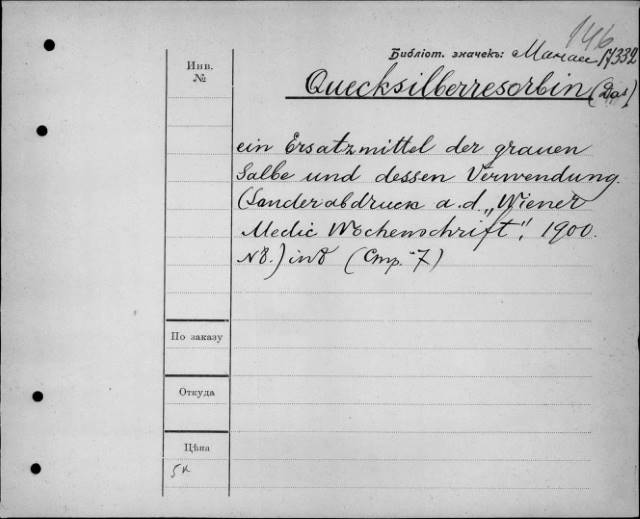 146
Библіот. значекъ: Магаг. IV332
Инв.
№
Quecksilberresorbin (Das)
ein Ersatzmittel der grauen
Salbe und dessen Verwendung.
(Sonderabdruck a. d. „Wiener
Medic Wochenschrift", 1900.
N8.) in 8 (Стр. 7)
По заказу
Откуда
Цѣна
5к